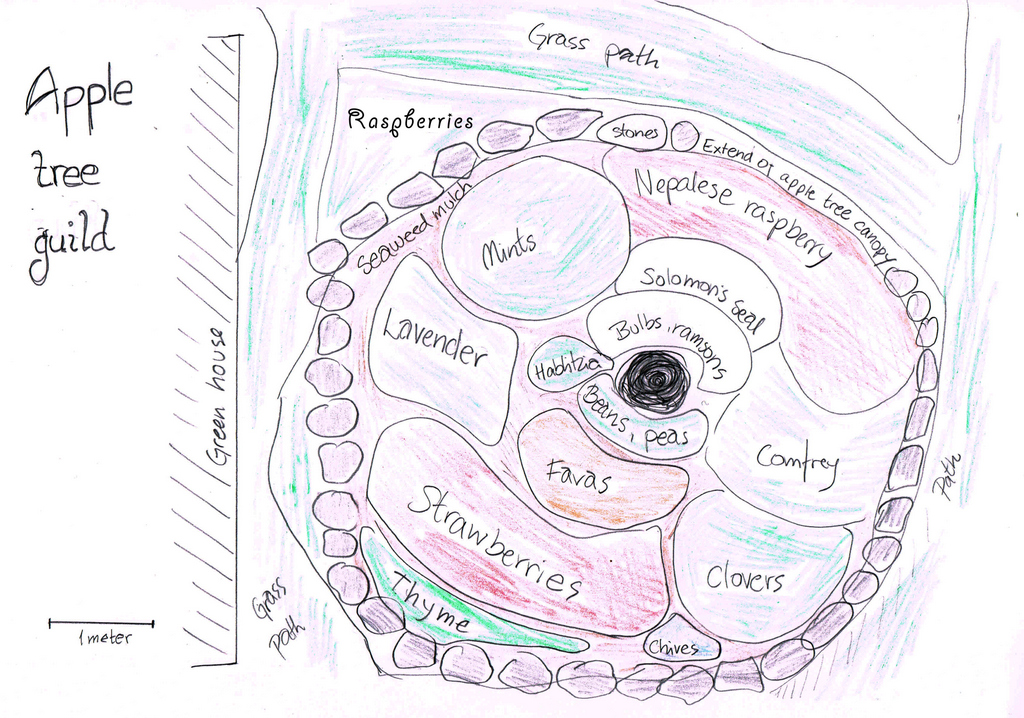 Apple
tree
guild
Grass path
Raspberries
stones
Extend of apple tree canopy
Seaweed mulch
Mints
Nepalese raspberry
Solomon's Seal
Bulbs, ramsons
Lavender
Hablitzia
Beans, peas
Green house
Favas
Comfrey
Path
Strawberries
Clovers
Thyme
Chives
Grass
path
1 meter